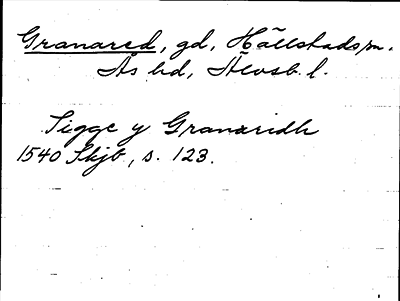 Granared, gd, Hällstads sn.
Ås hd, Älvsb. l.
Sigge y Granaridh
1540 Skjb, s. 123.